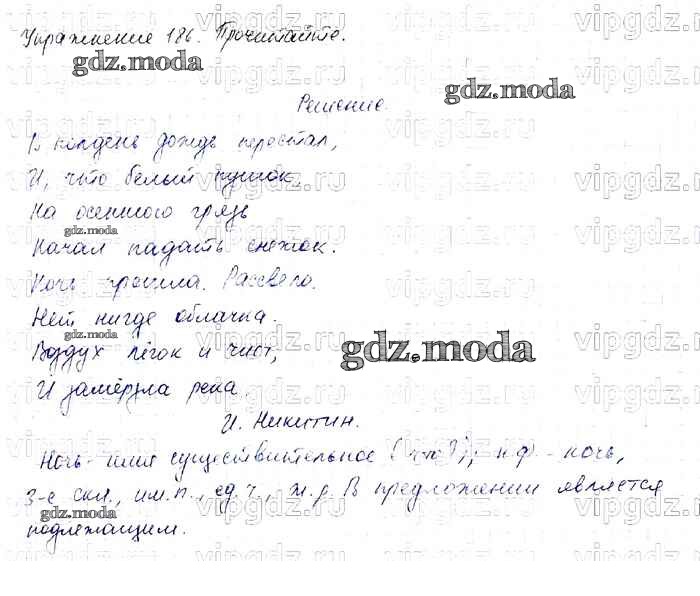 Упражнение 186. Прочитайте.
gdz.moda
gdz.moda
Решение
В полдень дождь перестал,
И, что белый пушок,
На осеннюю грязь
gdz.moda
Начал падать снежок.
Ночь прошла. Рассвело.
Нет нигде облачка.
gdz.moda
Воздух лёгок и чист,
gdz.moda
И замёрзла река.
И. Никитин.
Ночь - имя существительное (что?), н.ф. - ночь,
3-е скл., им.п., ед.ч., ж.р. В предложении является
gdz.moda
подлежащим.